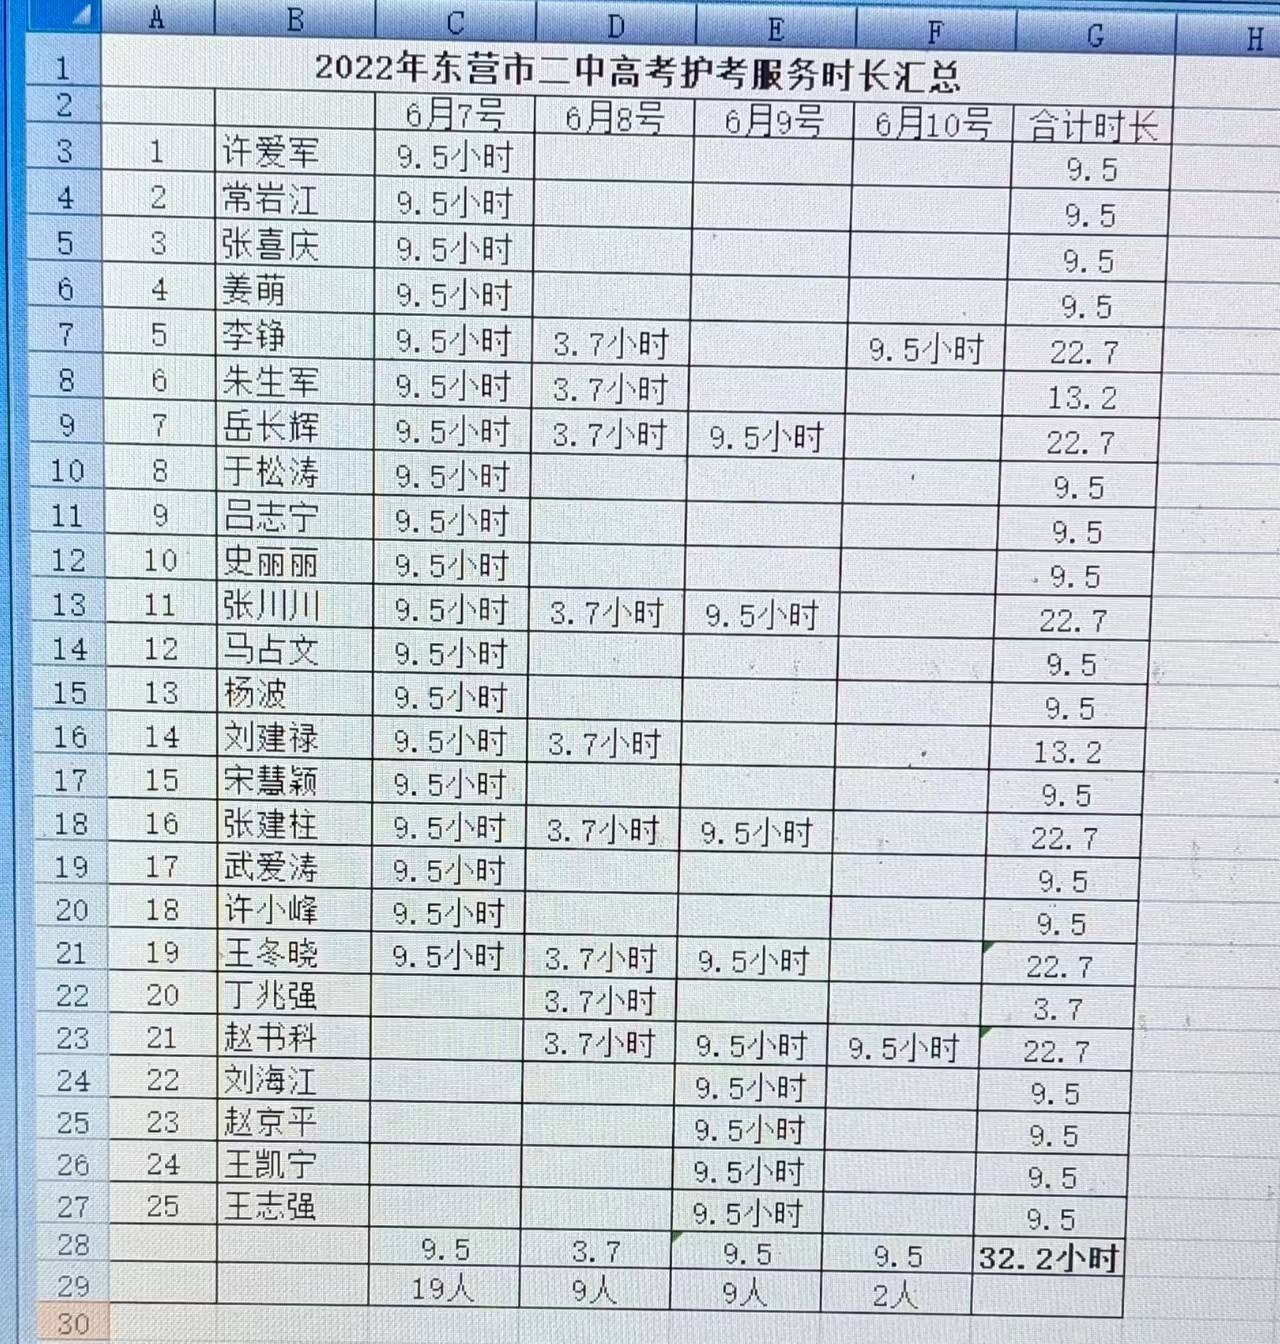 A B C D E F G H
1 2022年东营市二中高考护考服务时长汇总
2 6月7号 6月8号 6月9号 6月10号 合计时长
3 1 许爱军 9.5小时 9.5
4 2 常岩江 9.5小时 9.5
5 3 张喜庆 9.5小时 9.5
6 4 姜萌 9.5小时 9.5
7 5 李铮 9.5小时 3.7小时 9.5小时 22.7
8 6 朱生军 9.5小时 3.7小时 13.2
9 7 岳长辉 9.5小时 3.7小时 9.5小时 22.7
10 8 于松涛 9.5小时 9.5
11 9 吕志宁 9.5小时 9.5
12 10 史丽丽 9.5小时 9.5
13 11 张川川 9.5小时 3.7小时 9.5小时 22.7
14 12 马占文 9.5小时 9.5
15 13 杨波 9.5小时 9.5
16 14 刘建禄 9.5小时 3.7小时 13.2
17 15 宋慧颖 9.5小时 9.5
18 16 张建柱 9.5小时 3.7小时 9.5小时 22.7
19 17 武爱涛 9.5小时 9.5
20 18 许小峰 9.5小时 9.5
21 19 王冬晓 9.5小时 3.7小时 9.5小时 22.7
22 20 丁兆强 3.7小时 3.7
23 21 赵书科 3.7小时 9.5小时 9.5小时 22.7
24 22 刘海江 9.5小时 9.5
25 23 赵京平 9.5小时 9.5
26 24 王凯宁 9.5小时 9.5
27 25 王志强 9.5小时 9.5
28 9.5 3.7 9.5 9.5 32.2小时
29 19人 9人 9人 2人
30